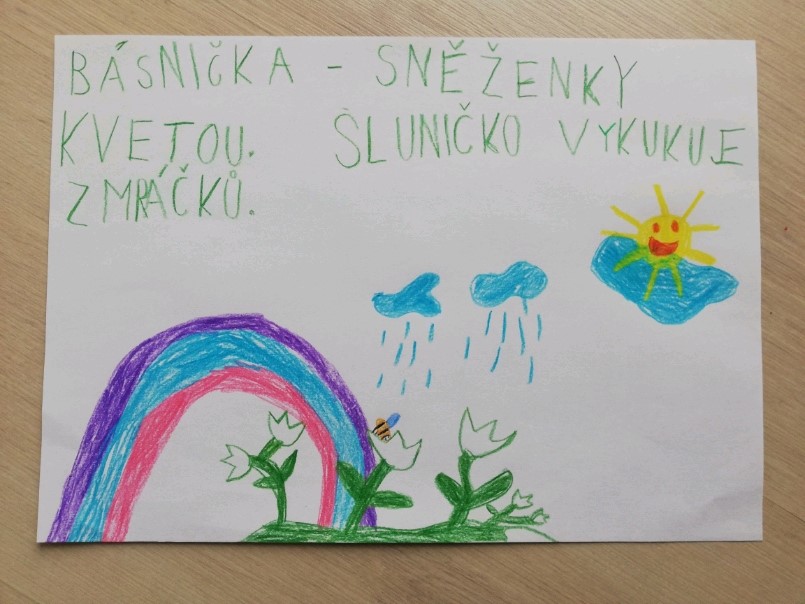 BÁSNIČKA - SNĚŽENKY
KVETOU. SLUNIČKO VYKUKUJE
Z MRÁČKŮ.